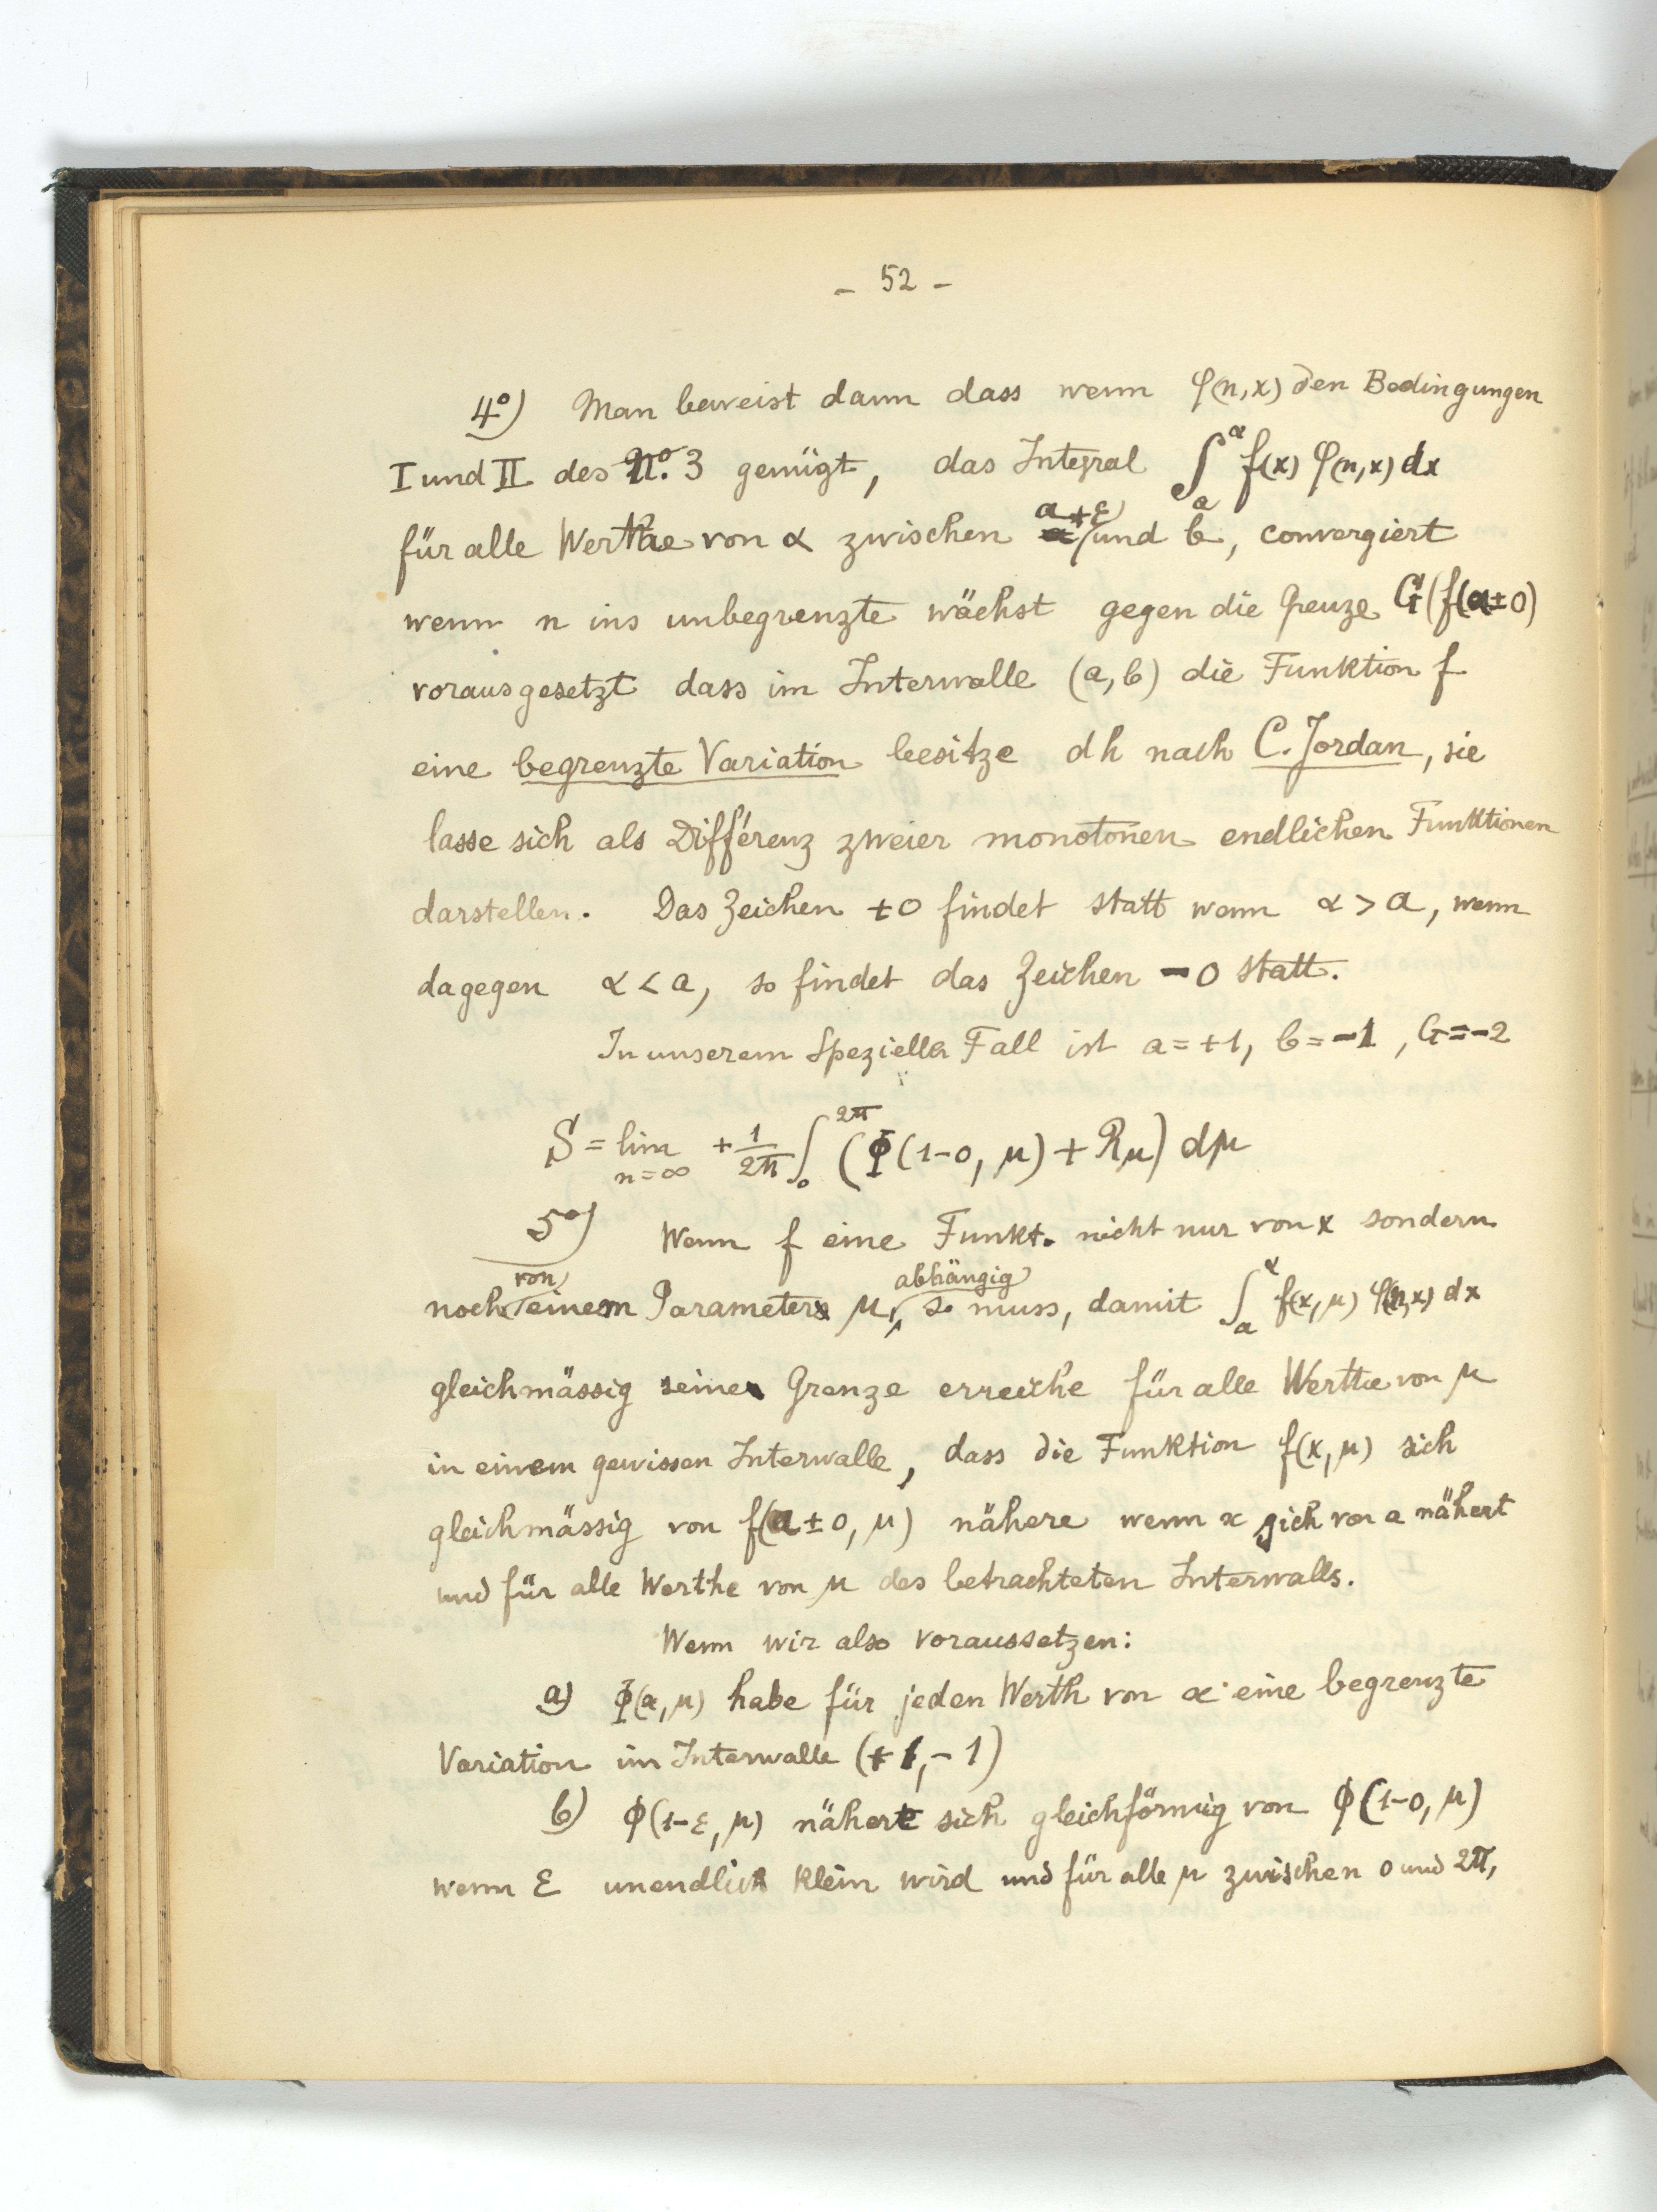 - 52 -
4º) Man beweist dann dass wenn φ(n,x) den Bedingungen
I und II des Nº. 3 genügt, das Integral ∫ₐ^α f(x) φ(n,x) dx
für alle Werthe von α zwischen a+ε und b, convergiert
wenn n ins unbegrenzte wächst gegen die Grenze G(f(a±0)
vorausgesetzt dass im Intervalle (a,b) die Funktion f
eine begrenzte Variation besitze dh nach C. Jordan, sie
lasse sich als Différenz zweier monotonen endlichen Funktionen
darstellen. Das Zeichen +0 findet statt wenn α > a, wenn
dagegen α < a, so findet das Zeichen -0 statt.
In unserem Speziellen Fall ist a=+1, b=-1, G=-2
S = lim n=∞ + 1/2π ∫₀^2π (Φ(1-0, μ) + Rμ) dμ
5º) Wenn f eine Funkt. nicht nur von x sondern
noch von einem Parameter μ abhängig so muss, damit ∫ₐ^α f(x,μ) φ(n,x) dx
gleichmässig seine Grenze erreiche für alle Werthe von μ
in einem gewissen Intervalle, dass die Funktion f(x,μ) sich
gleichmässig von f(a±0, μ) nähere wenn x sich von a nähert
und für alle Werthe von μ des betrachteten Intervalls.
Wenn wir also voraussetzen:
a) Φ(α,μ) habe für jeden Werth von α eine begrenzte
Variation im Intervalle (+1,-1)
b) Φ(1-ε, μ) nähert sich gleichförmig von Φ(1-0, μ)
wenn ε unendlich klein wird und für alle μ zwischen 0 und 2π,